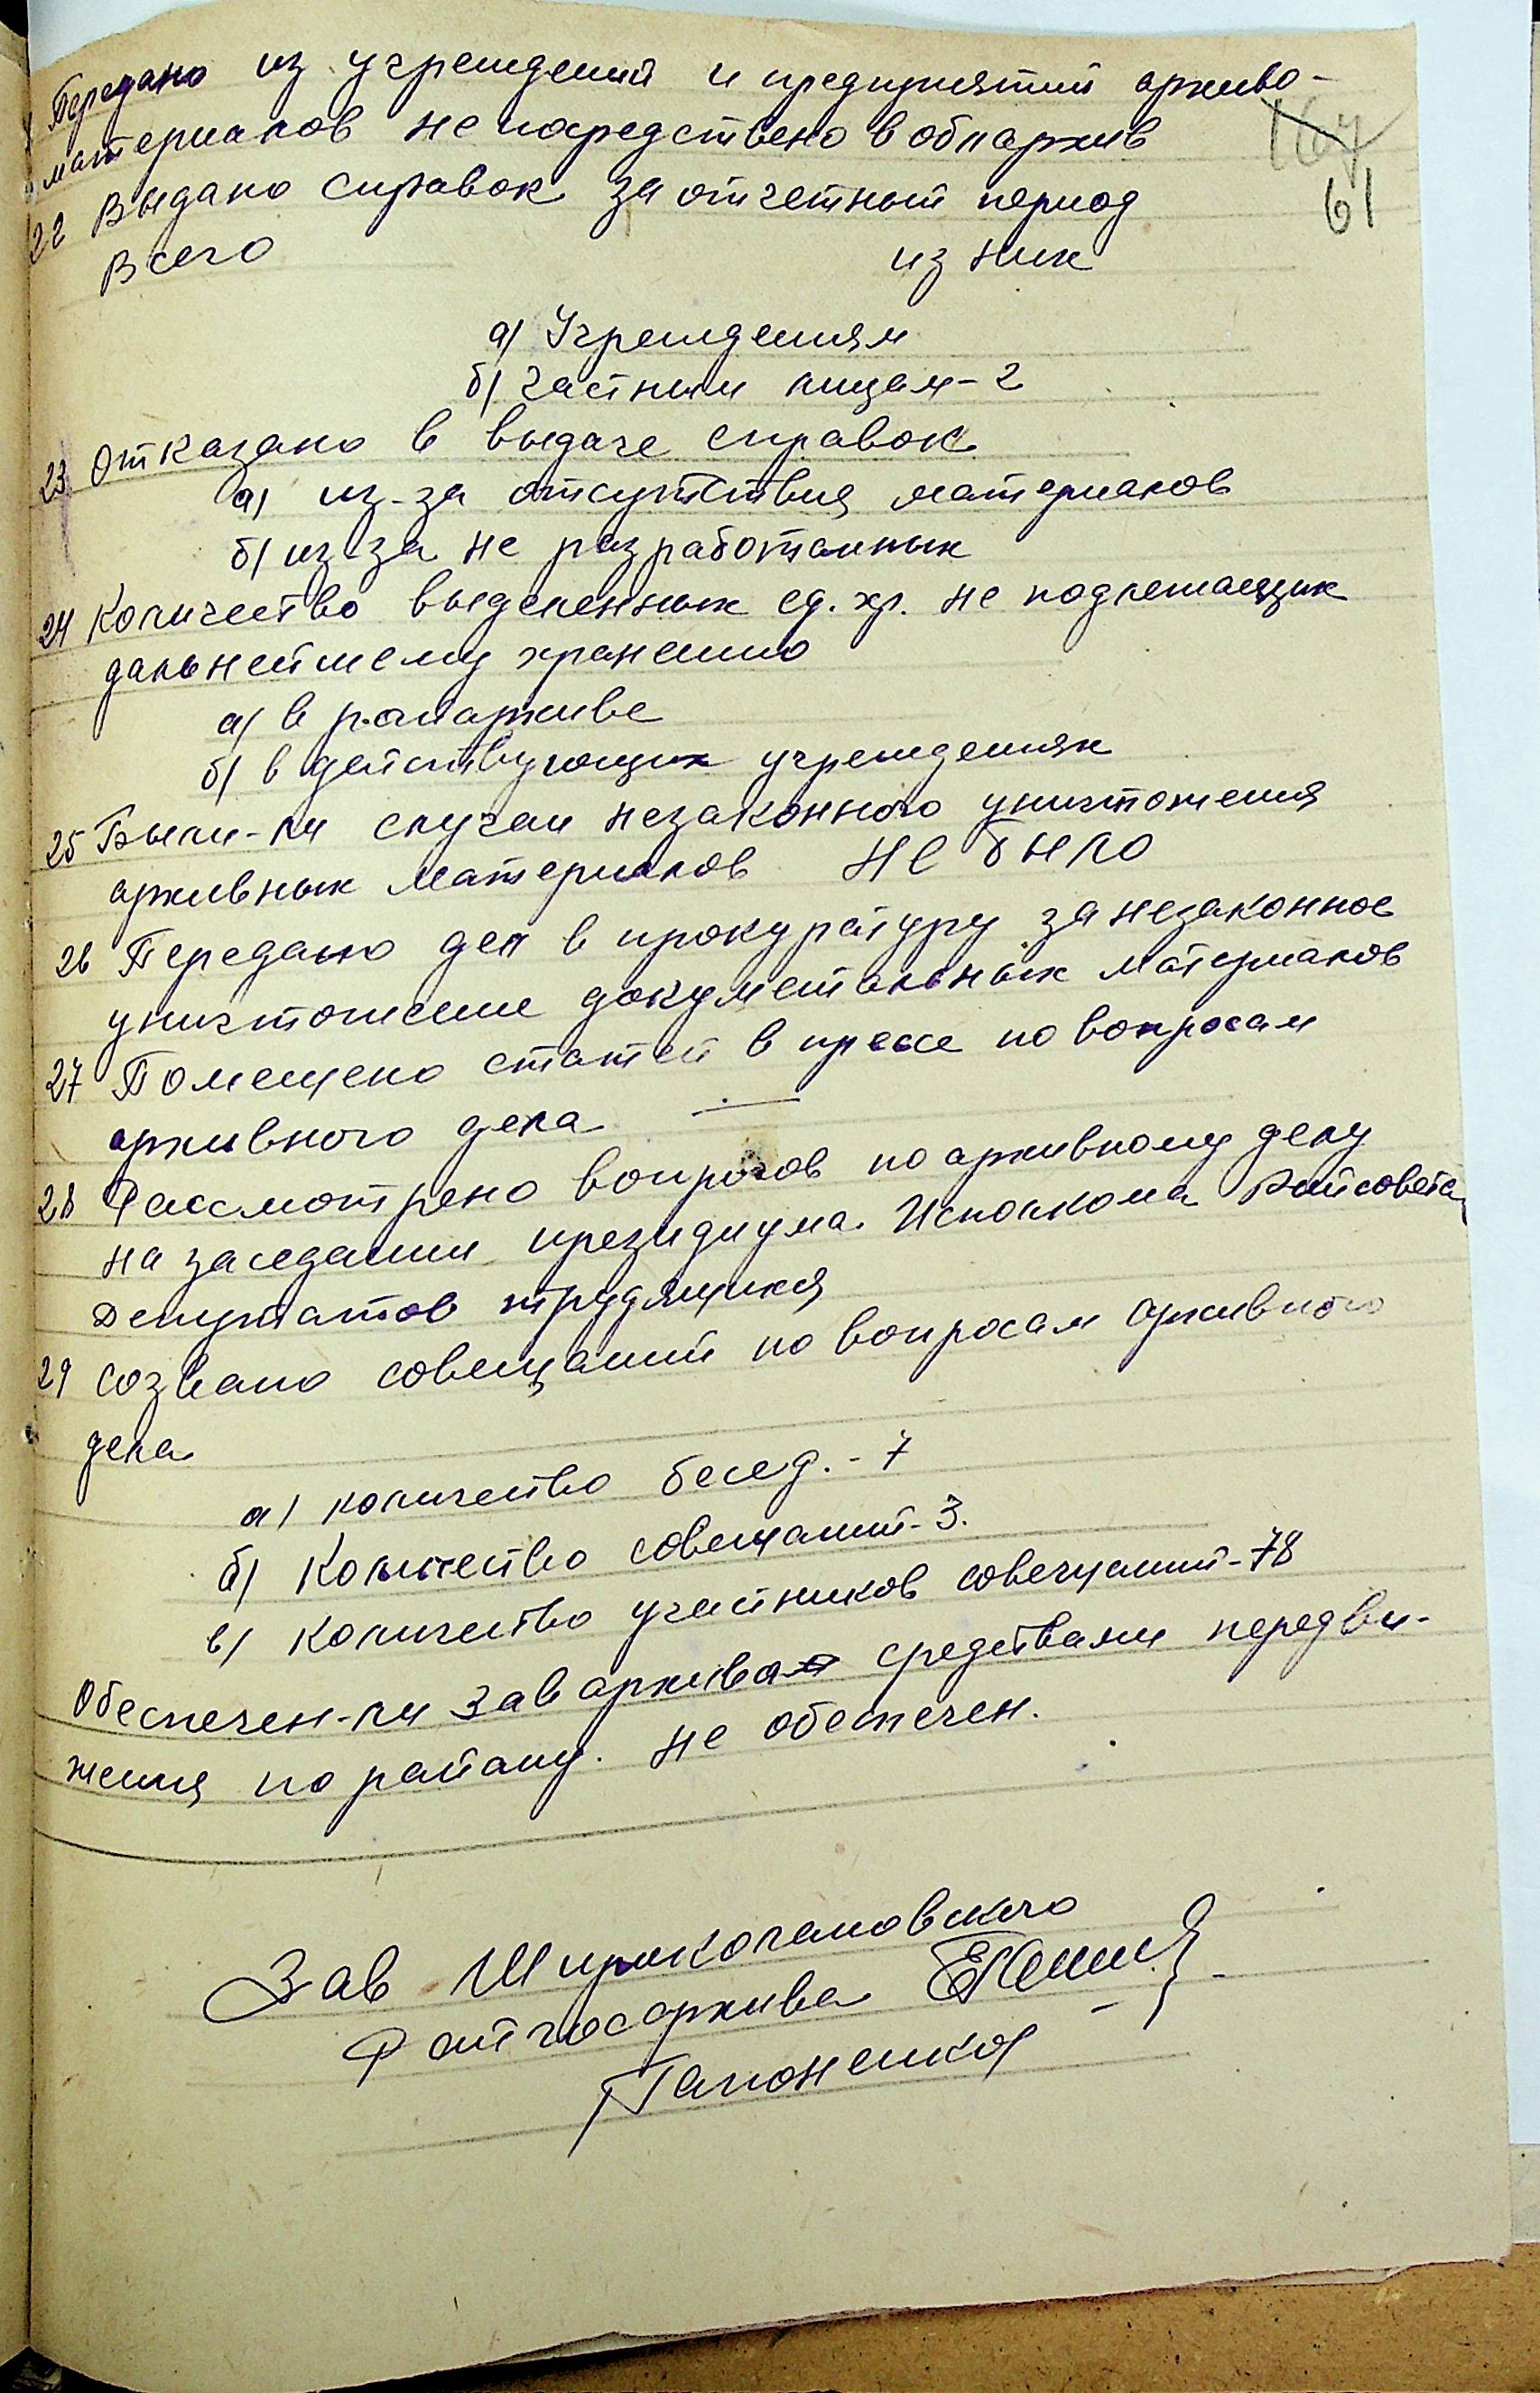 Передано из учреждений и предприятий архиво-
материалов непосредствено в облархив
167
61
22 Выдано справок за отчетный период
Всего из них
а) Учреждениям
б) частным лицам - 2
23 Отказано в выдаче справок
а) из-за отсутствия материалов
б) из-за не разработанных
24 Количество выделенных ед. хр. не подлежащих
дальнейшему хранению
а) в райархиве
б) в действующих учреждениях
25 Были-ли случаи незаконного уничтожения
архивных материалов не было
26 Передано дел в прокуратуру за незаконное
уничтожение документальных материалов
27 Помещено статей в пресе по вопросам
архивного дела —
28 Рассмотрено вопросов по архивному делу
на заседании президиума Исполкома Райсовета
Депутатов трудящихся
29 созвано совещаний по вопросам архивного
дела
а) количество бесед. - 7
б) Количество совещаний - 3.
в) Количество участников совещаний - 78
Обеспечен-ли зав архива средствами передви-
жения по району. не обеспечен.
Зав Широколановского
Райгосархива
Гапоненко